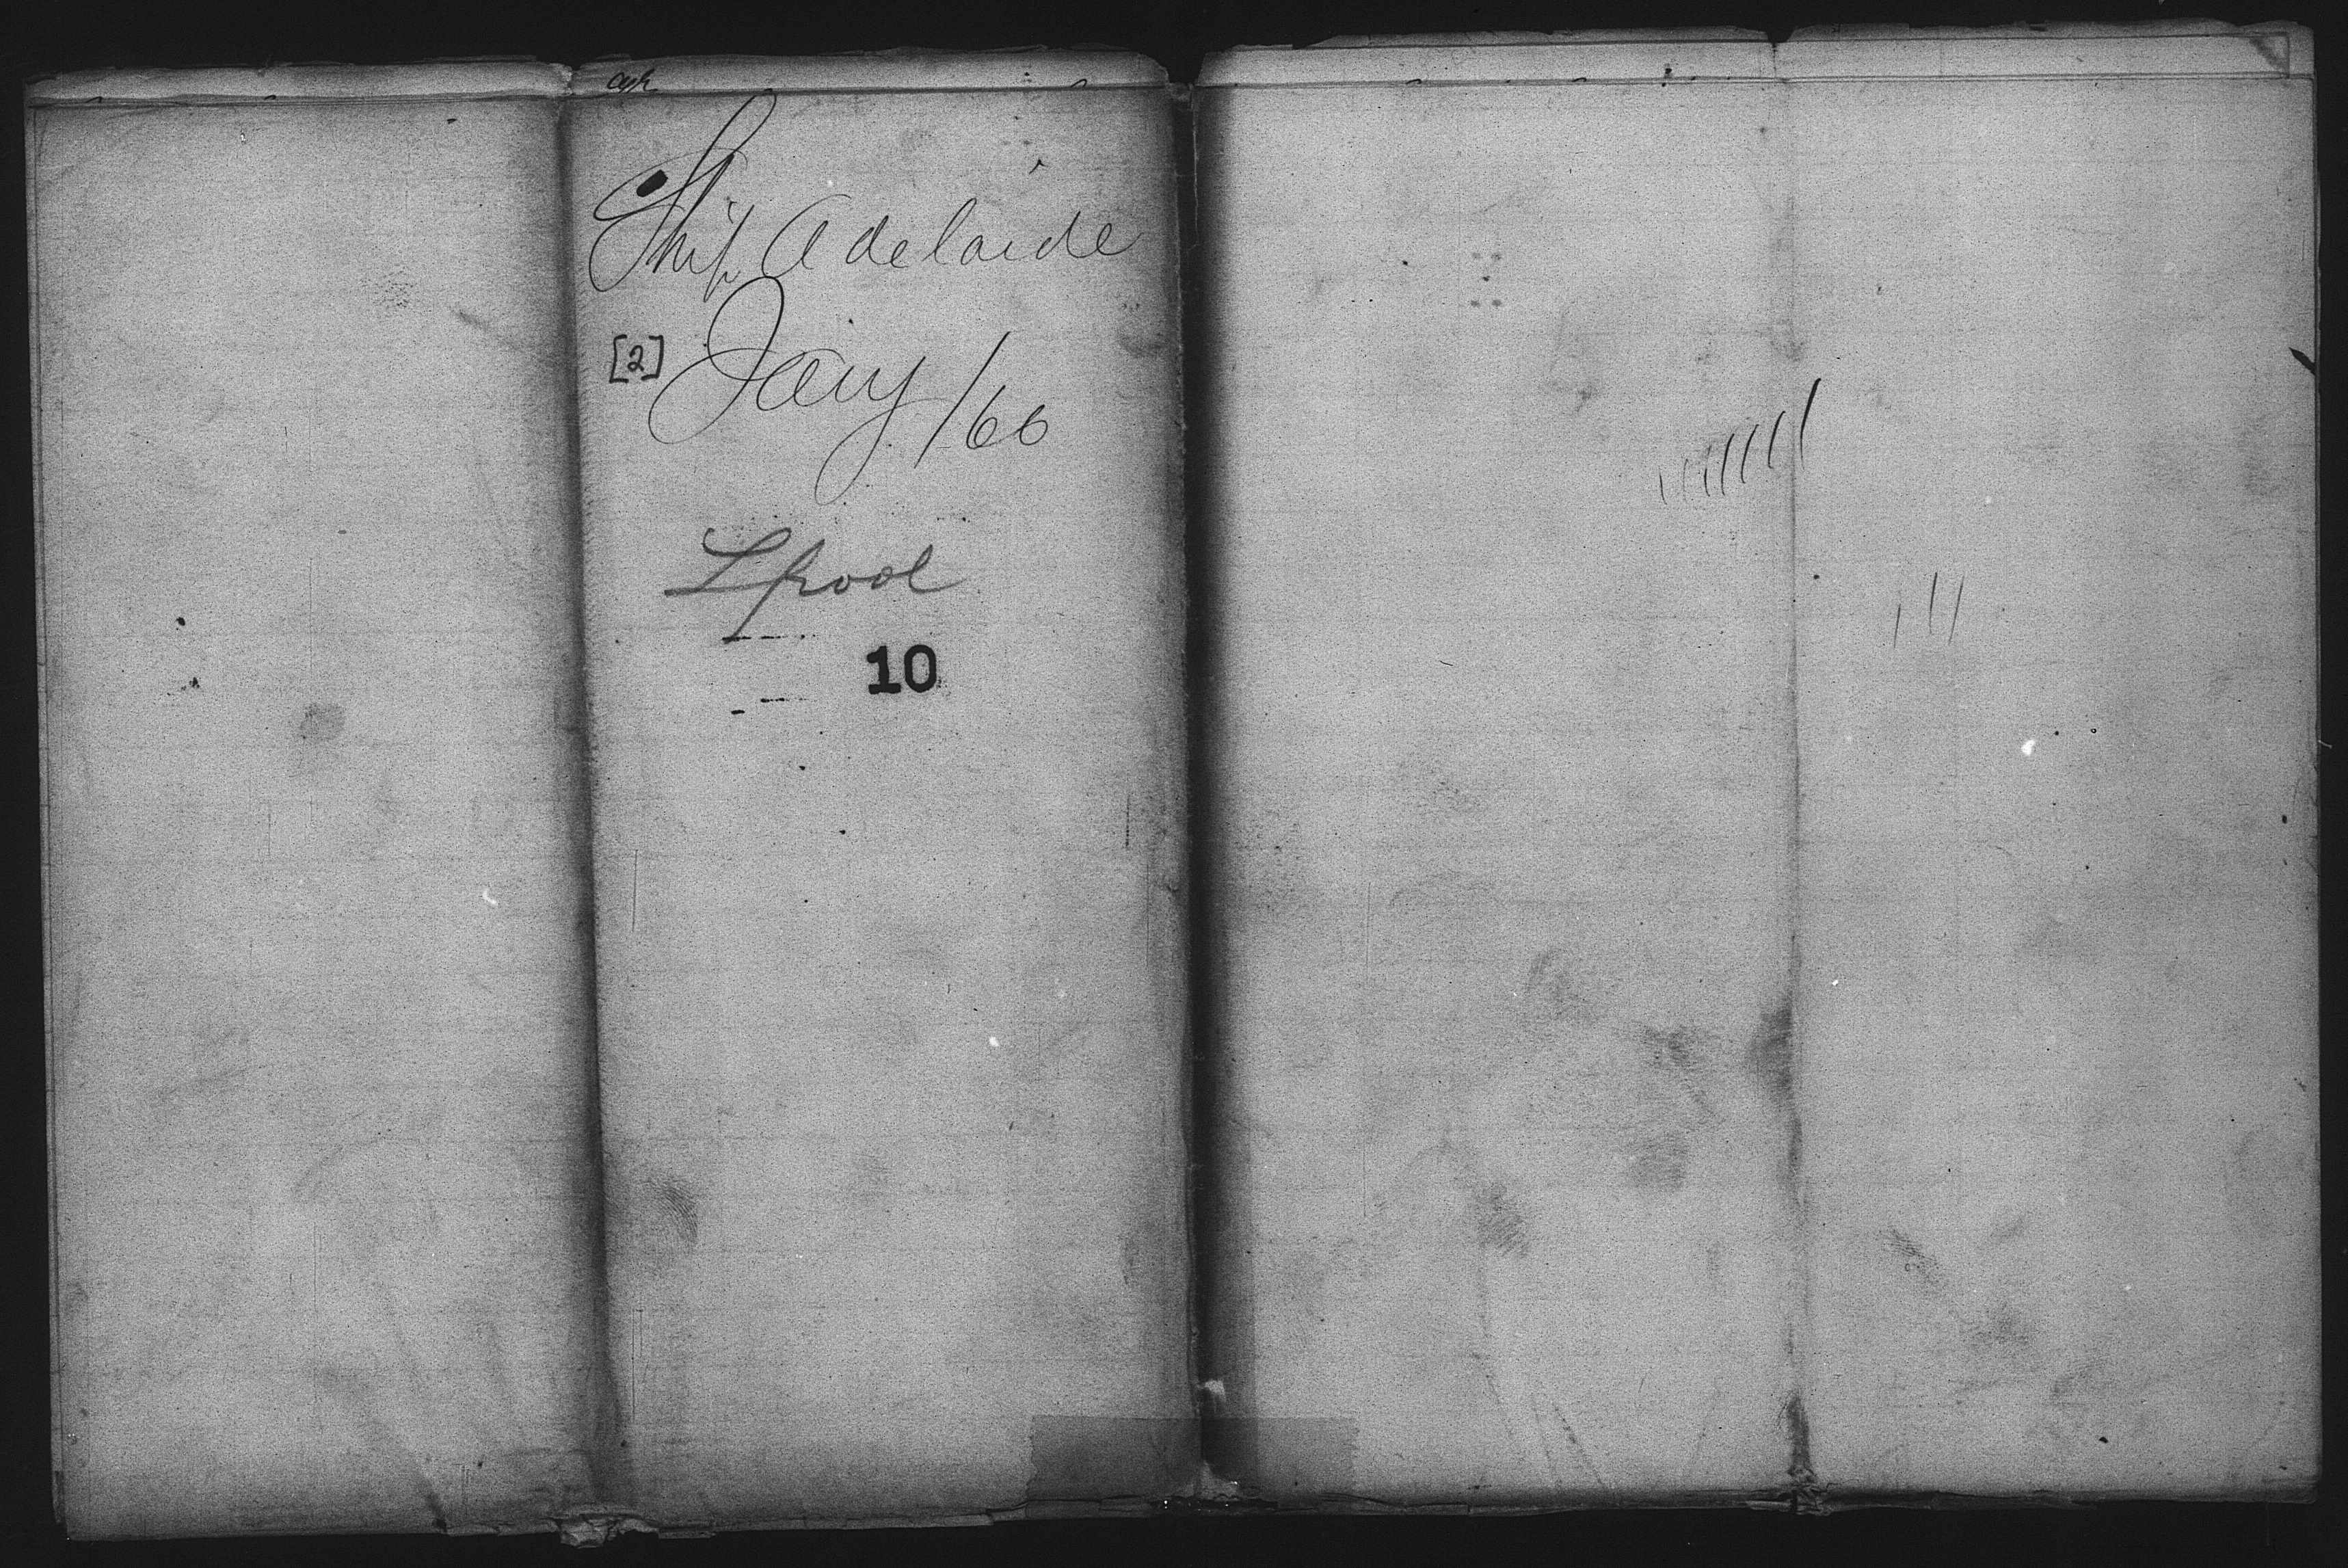 Ship Adelaide
[2] Jany /66
Lpool
10